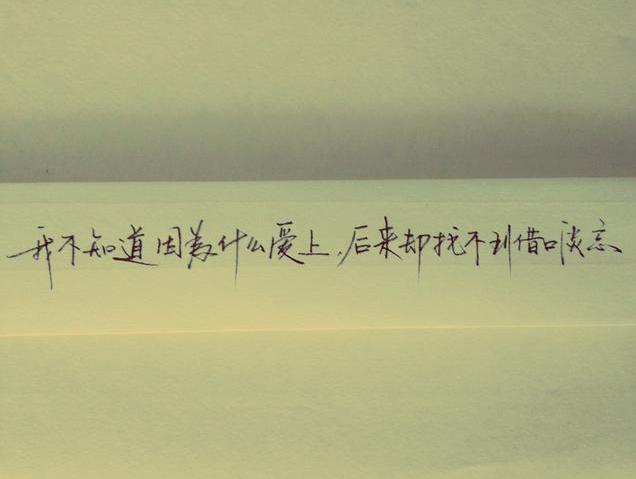 我不知道因為什么愛上,后来却找不到借口淡忘